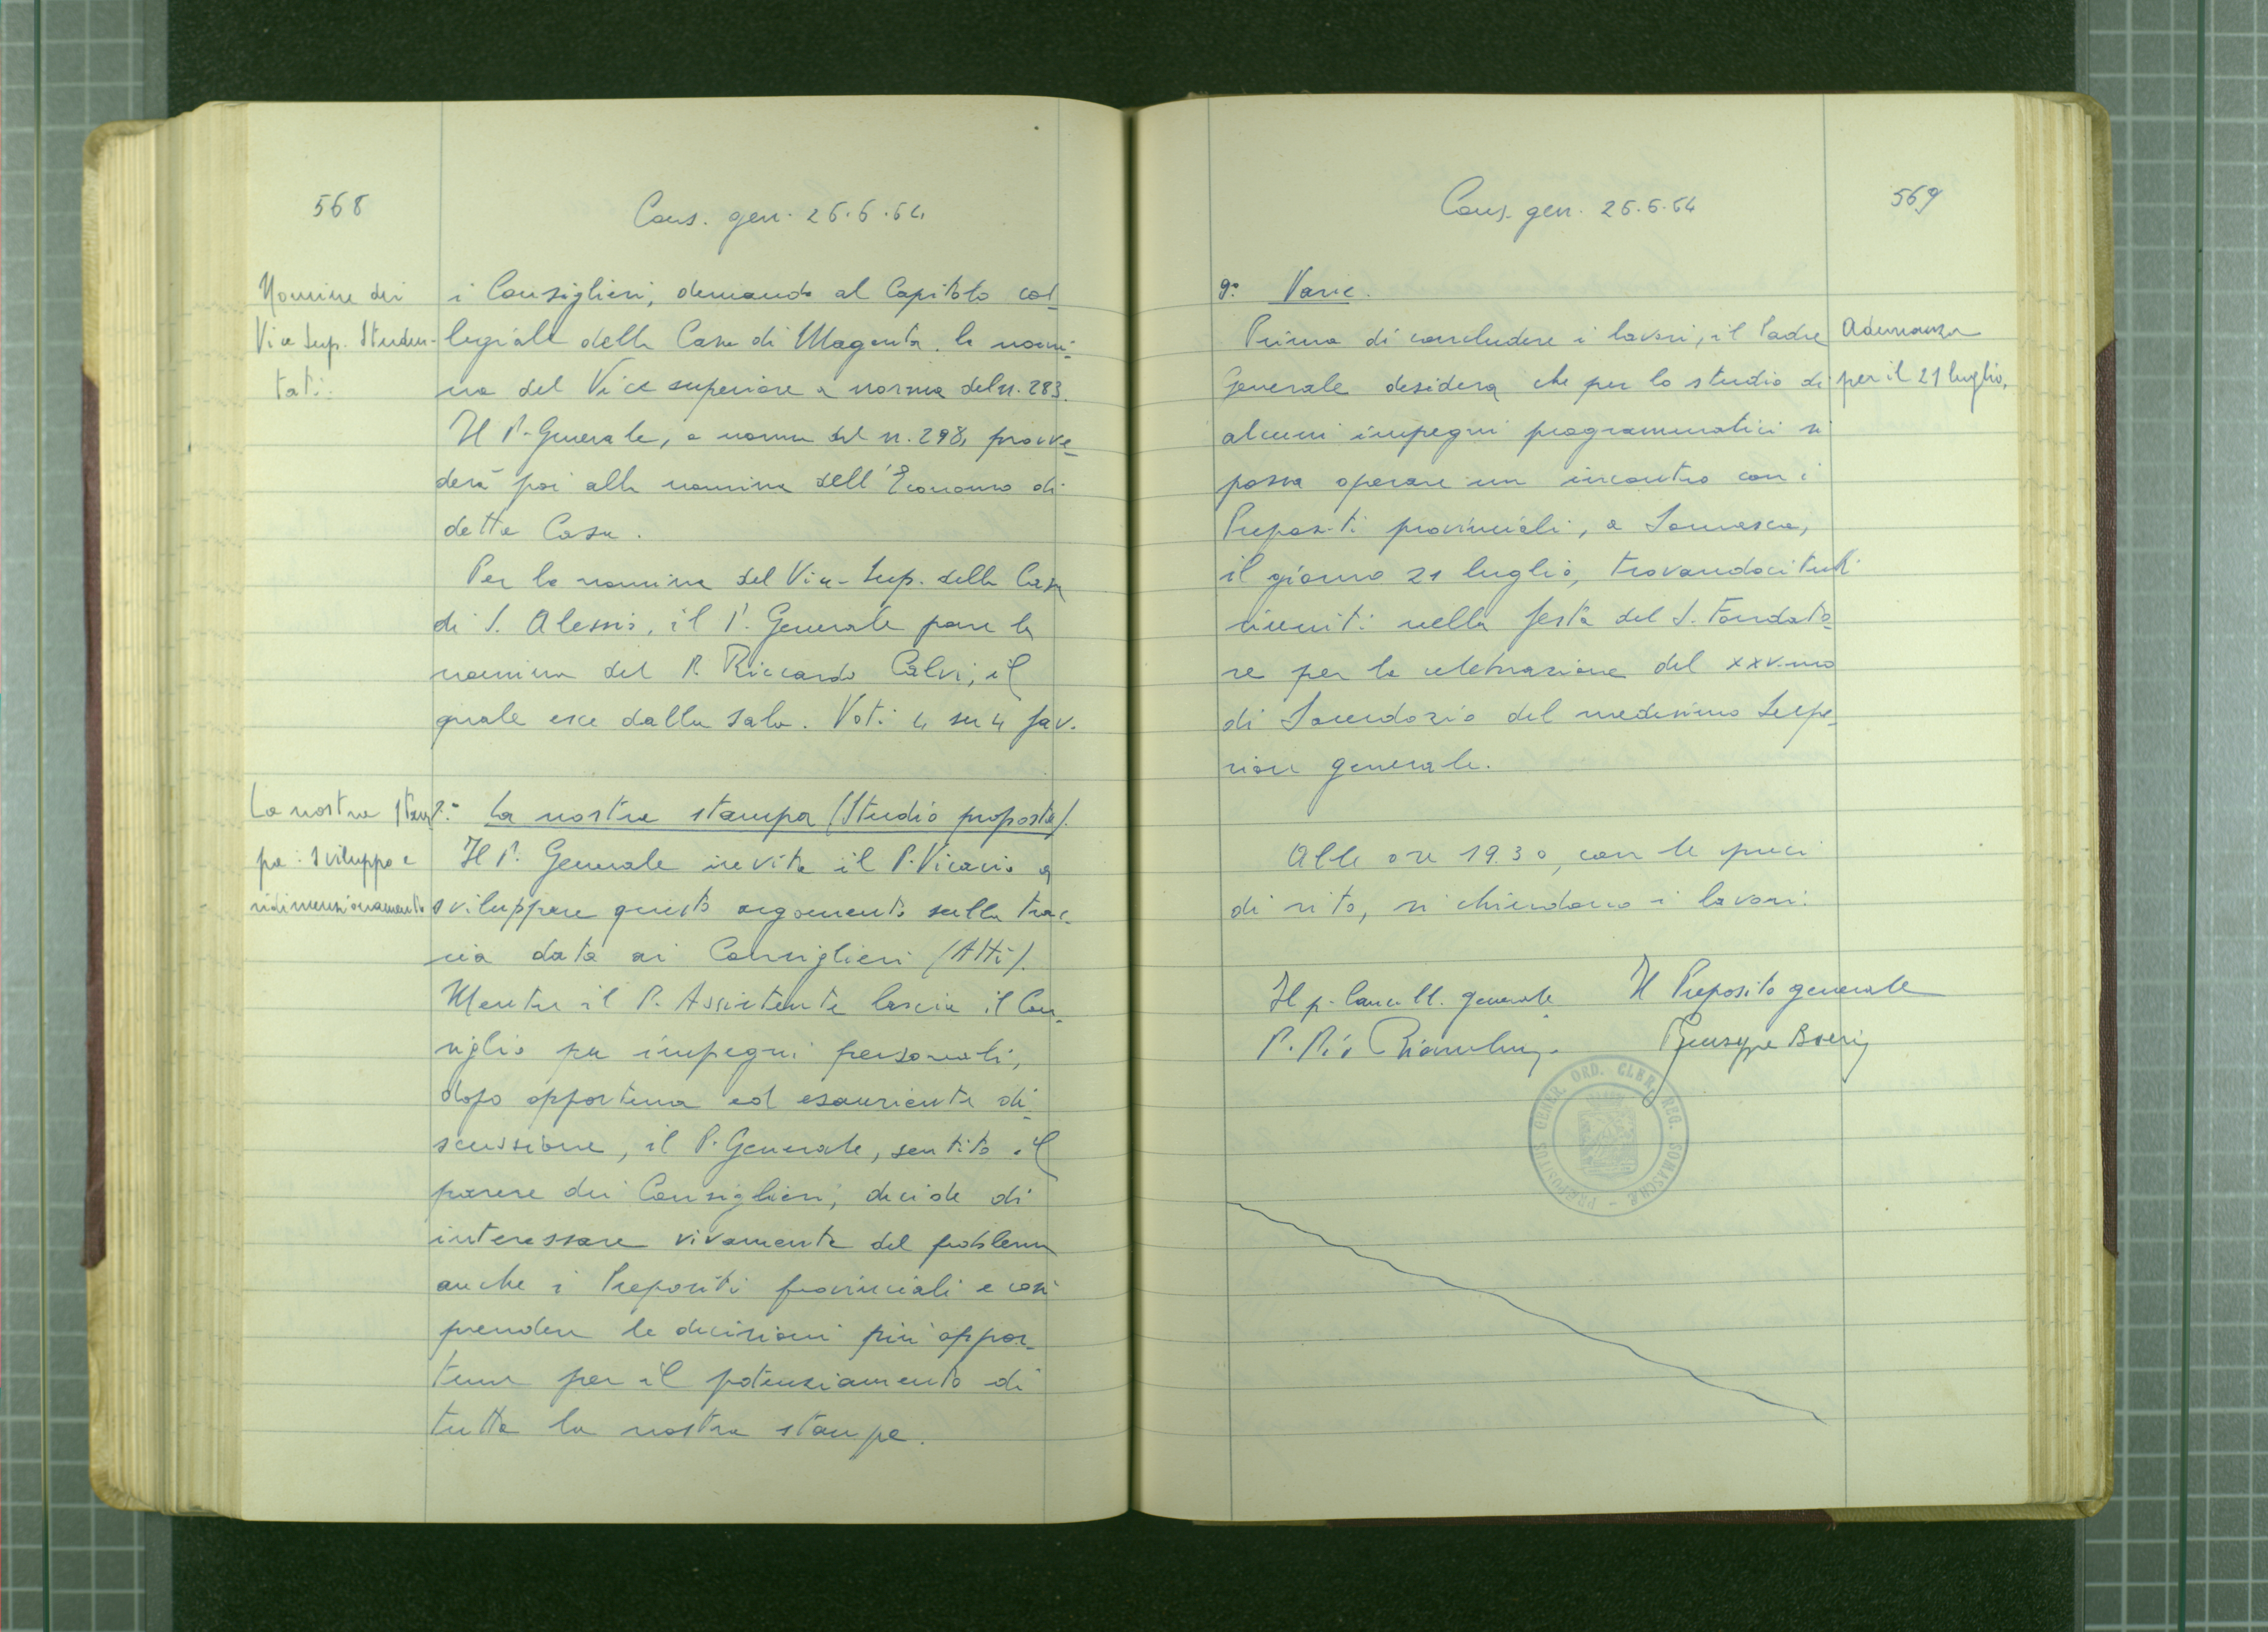 568
Cons. gen. 26.6.64
Nomine dei
Vice Sup. Studen-
tati:
i Consiglieri, demanda al Capitolo col-
legiale della Casa di Magenta la nomi-
na del Vice superiore a norma del n. 283.
Il P. Generale, a norma del n. 298, provve-
derà poi alla nomina dell'Economo di
detta Casa.
Per la nomina del Vice-Sup. della Casa
di S. Alessio, il P. Generale pone la
nomina del P. Riccardo Calvi, il
quale esce dalla sala. Voti 4 su 4 fav.
La nostra stam
pa: sviluppo e
ridimensionamento
La nostra stampa (Studio proposta).
Il P. Generale invita il P. Vicario a
sviluppare questo argomento sulla trac-
cia data ai Consiglieri (Atti).
Mentre il P. Assistente lascia il Con-
siglio per impegni personali,
dopo opportuna ed esauriente di-
scussione, il P. Generale, sentito il
parere dei Consiglieri, decide di
interessare vivamente del problema
anche i Prepositi provinciali e così
prendere le decisioni più oppor-
tune per il potenziamento di
tutta la nostra stampa.
Cons. gen. 26.6.64
569
9° Varie.
Prima di concludere i lavori, il Padre
Generale desidera che per lo studio di
alcuni impegni programmatici si
possa operare un incontro con i
Prepositi provinciali, a Somasca,
il giorno 21 luglio, trovandoci tutti
riuniti nella festa del S. Fondato-
re per la celebrazione del XXV.mo
di Sacerdozio del medesimo Supe-
riore generale.
Adunanza
per il 21 luglio.
Alle ore 19.30, con le preci
di rito, si chiudono i lavori.
Il p. Cancell. generale
Il Preposito generale
P. Pio Bianchini
P. Giuseppe Boeris
PRAEPOSITUS GENER. ORD. CLER. REG. SOMASCHAE